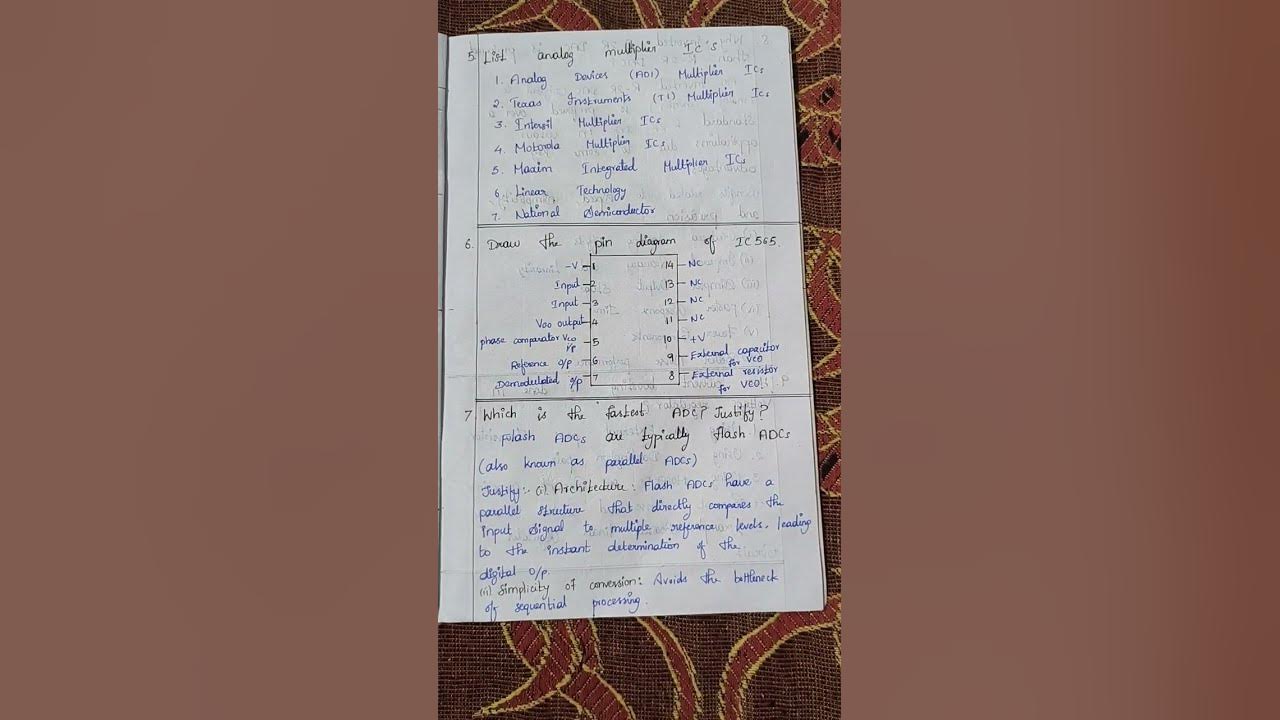 5. List analog multiplier IC's
1. Analog Devices (ADI) Multiplier ICs
2. Texas Instruments (TI) Multiplier ICs
3. Intersil Multiplier ICs
4. Motorola Multiplier ICs
5. Maxim Integrated Multiplier ICs
6. Linear Technology
7. National Semiconductor
6. Draw the pin diagram of IC 565.
-V 1 14 NC
Input 2 13 NC
Input 3 12 NC
output 4 11 NC
phase comparator VCO 5 10 +V
I/p
Reference O/p 6 9 External capacitor
for VCO
Demodulated O/p 7 8 External resistor
for VCO
7 Which is the fastest ADC? Justify?
Flash ADCs are typically flash ADCs
(also known as parallel ADCs)
Justify:- (i) Architecture: Flash ADCs have a
parallel structure that directly compares the
input signal to multiple reference levels, leading
to the instant determination of the
digital O/p.
(ii) Simplicity of conversion: Avoids the bottleneck
of sequential processing.